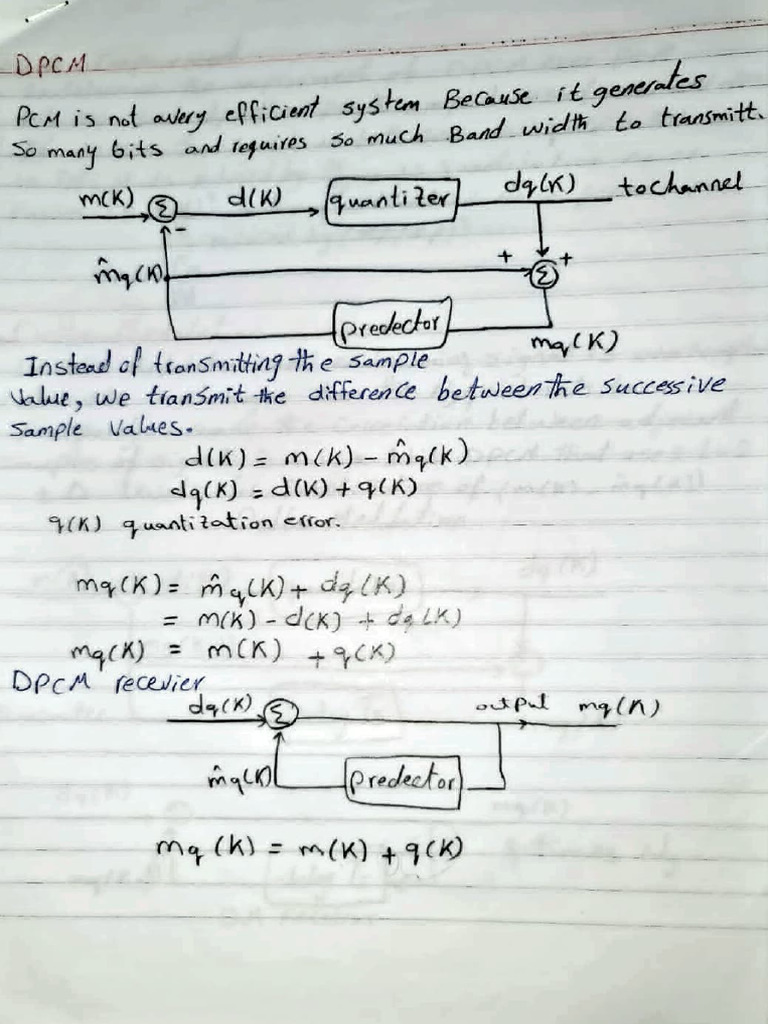 DPCM
PCM is not avery efficient system Because it generates
So many bits and requires so much Band width to transmitt.
m(K) Σ d(K) quantizer dq(K) to channel
-
m̂q(K) + Σ +
predector mq(K)
Instead of transmitting the sample
Value, we transmit the difference between the successive
Sample Values.
d(K) = m(K) - m̂q(K)
dq(K) = d(K) + q(K)
q(K) quantization error.
mq(K) = m̂q(K) + dq(K)
= m(K) - d(K) + dq(K)
mq(K) = m(K) + q(K)
DPCM recevier
dq(K) Σ output mq(K)
m̂q(K) predector
mq(K) = m(K) + q(K)